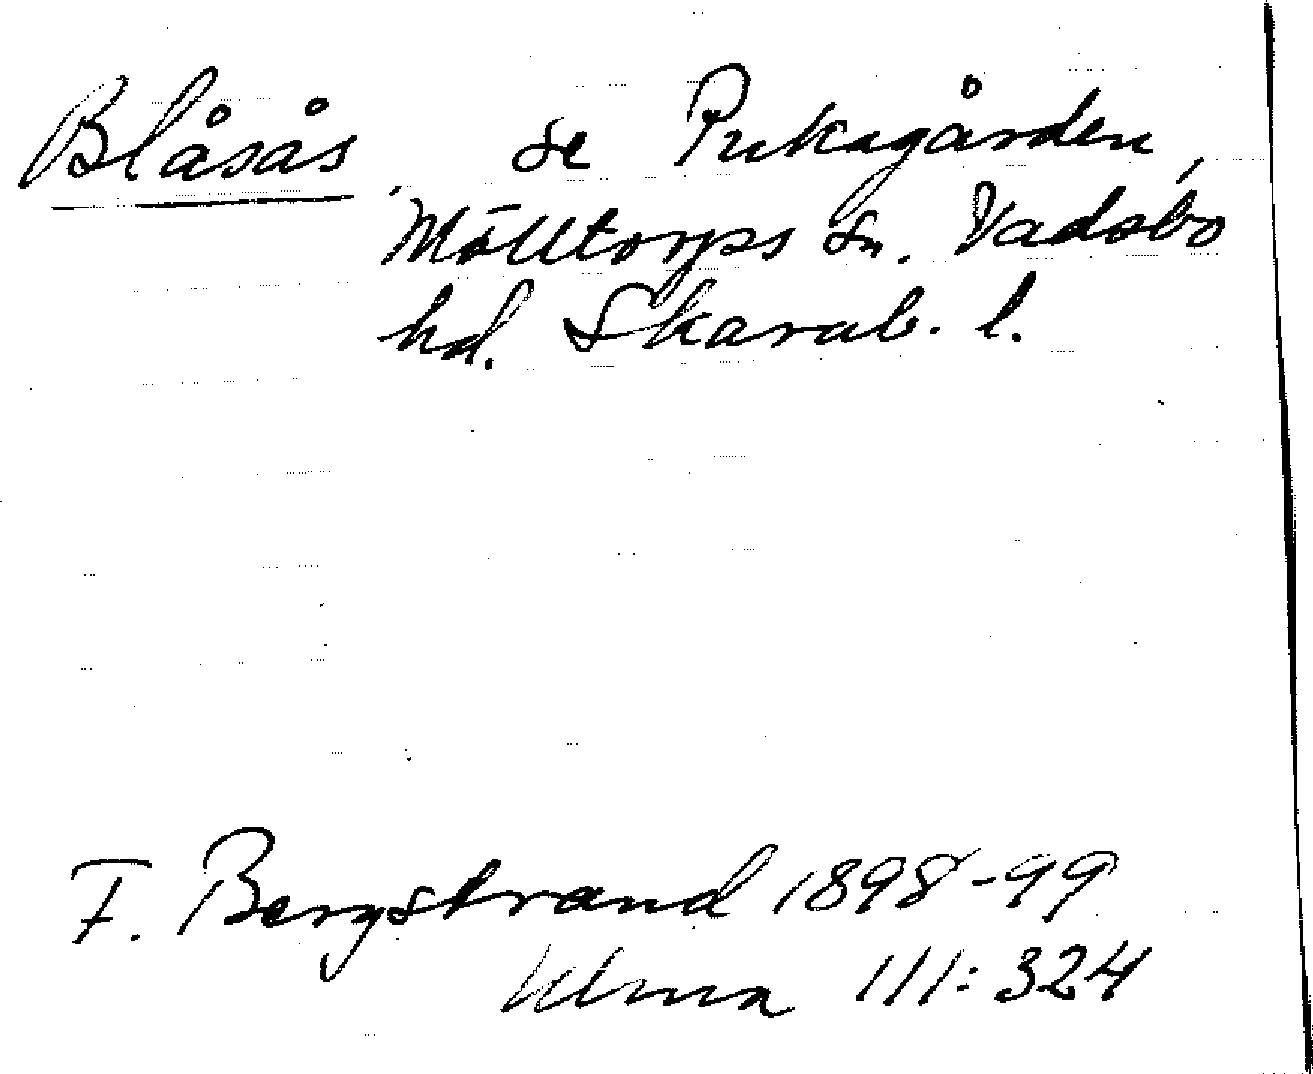 Blåsås se Pukagården,
Mölltorps sn. Vadsbo
hd. Skarab. l.
F. Bergstrand 1898-99
Ulma 111:324